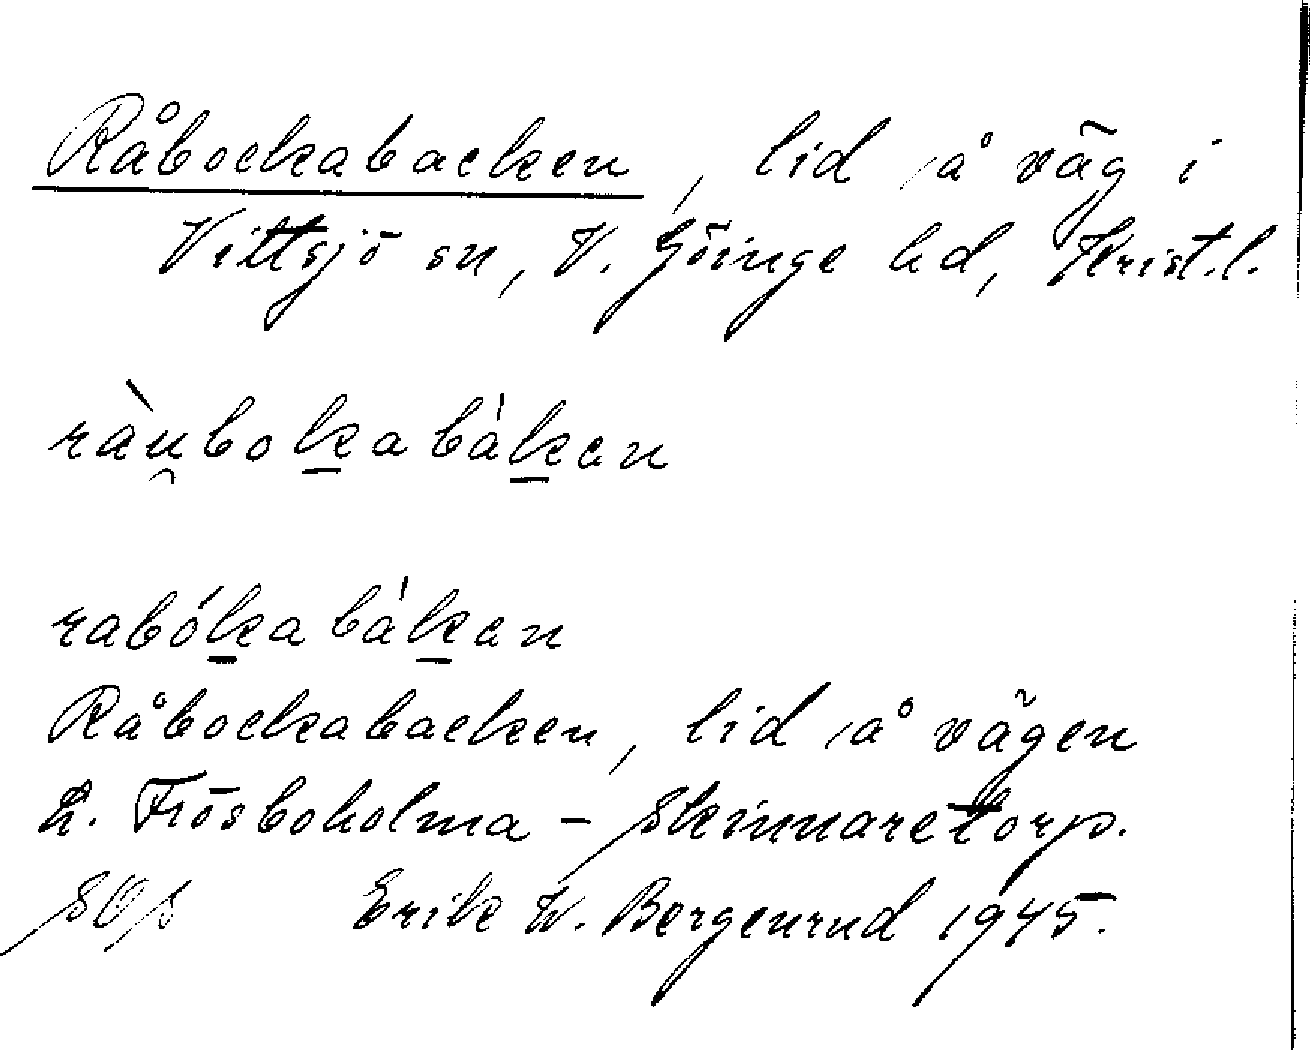 Råbockabacken, lid å väg i
Vittsjö sn, V. Göinge hd, Krist.l.
ràu̯bok̲abák̲an
rabók̲abák̲an
Råbockabacken, lid å vägen
L. Frösboholma – Skinnaretorp.
Erik W. Bergenrud 1945.